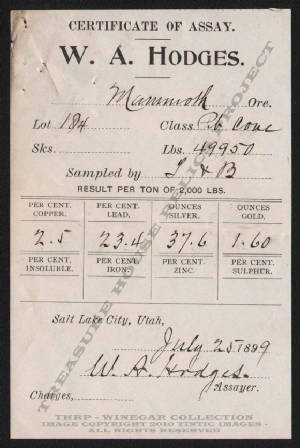 CERTIFICATE OF ASSAY.
W. A. HODGES.
Mammoth Ore.
Lot 184 Class Pb Conc
Sks. Lbs. 49950
Sampled by T & B
RESULT PER TON OF 2,000 LBS.
PER CENT. COPPER. PER CENT. LEAD. OUNCES SILVER. OUNCES GOLD.
2.5 23.4 37.6 1.60
PER CENT. INSOLUBLE. PER CENT. IRON. PER CENT. ZINC. PER CENT. SULPHUR.
Salt Lake City, Utah,
July 25 1899
W. A. Hodges.
Charges, Assayer.
TREASURE HOUSE RELICS PROJECT
THRP - WINEGAR COLLECTION
IMAGE COPYRIGHT 2010 TINTIC IMAGES -
ALL RIGHTS RESERVED